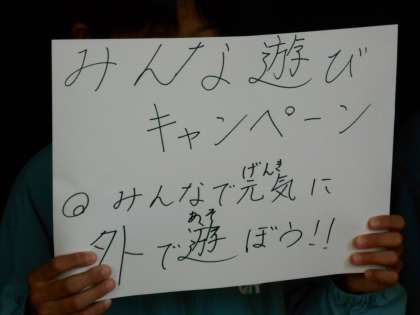 みんな遊び
キャンペーン
◎ みんなで元気に
外で遊ぼう!!